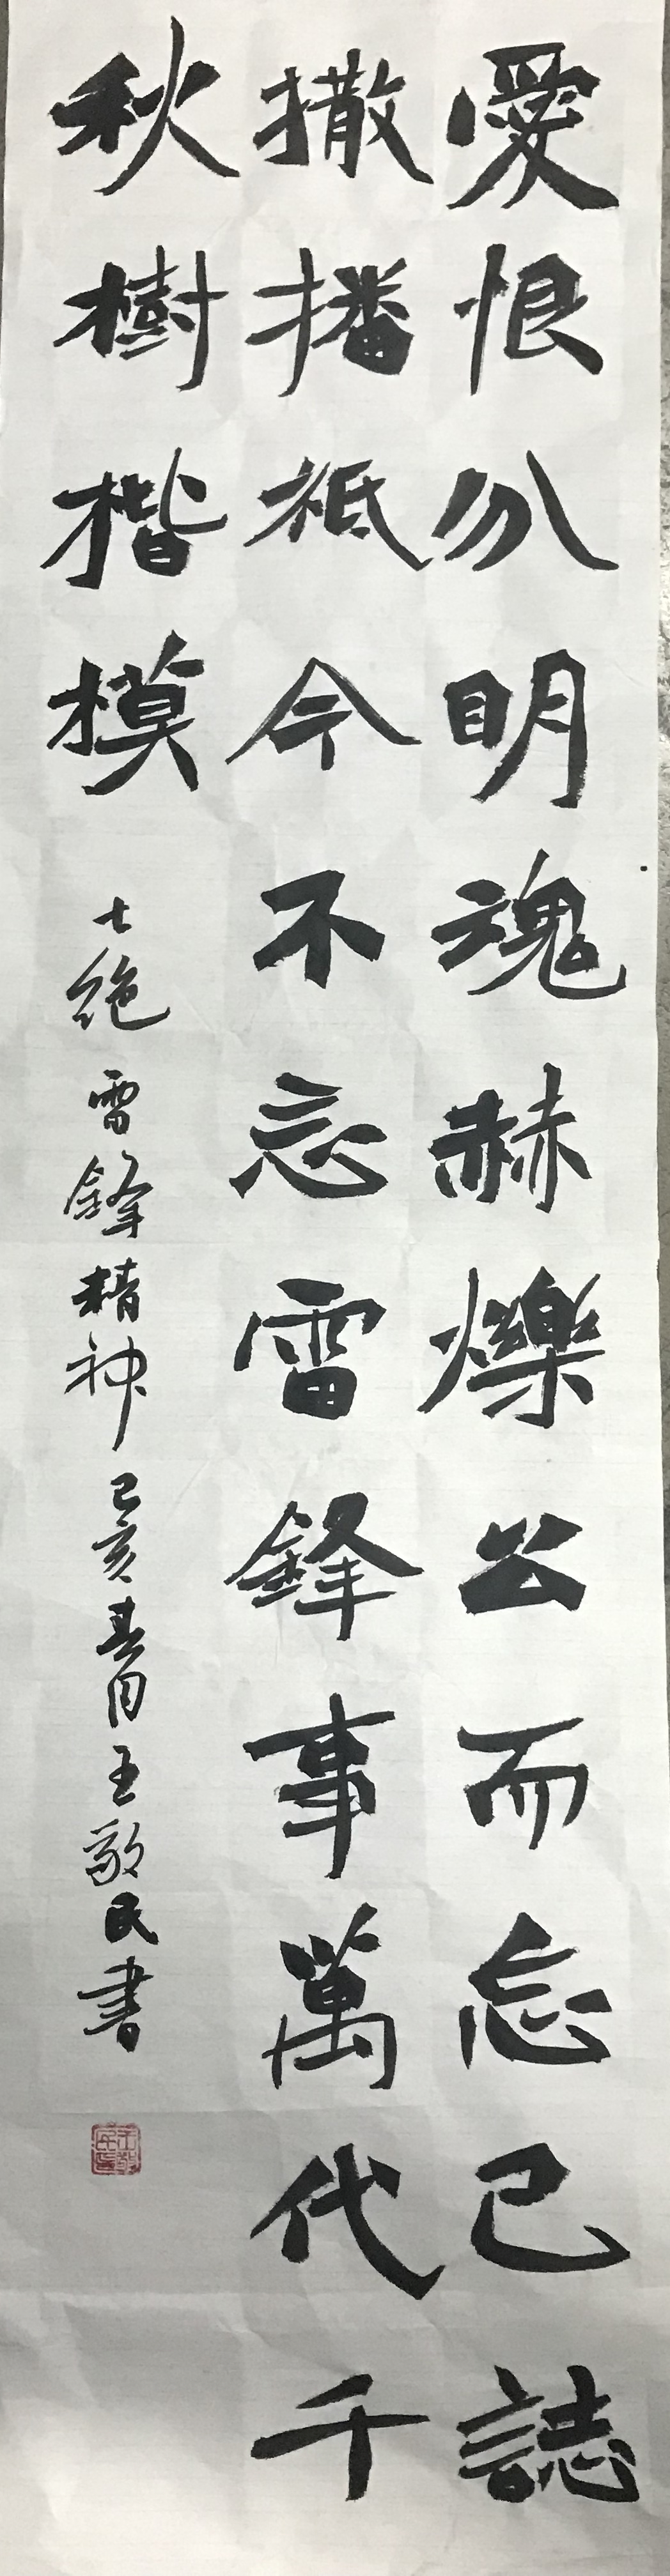 愛恨分明魂赫爍公而忘己誌
撒播祗今不忘雷鋒事萬代千
秋樹楷模
七絶 雷鋒精神 己亥春月 王敬民書